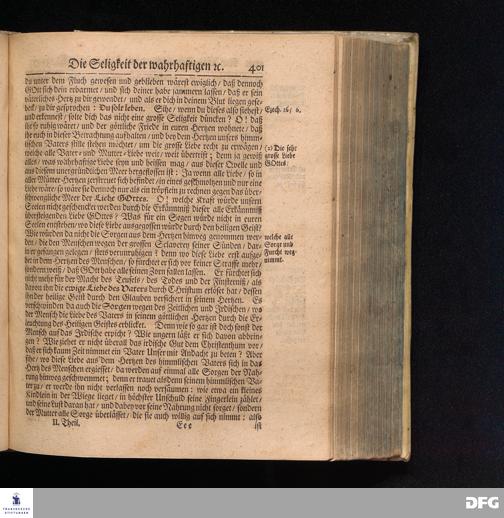 Die Seligkeit der wahrhafftigen ꝛc. 401
du unter dem Fluch gewesen und geblieben wärest ewiglich/ daß dennoch
GOtt sich dein erbarmet/ und sich deiner habe jammern lassen/ daß er sein
väterliches Hertz zu dir gewendet/ und als er dich in deinem Blut liegen gese-
hen/ zu dir gesprochen: Du solt leben. Siehe/ wenn du dieses also siehest/
und erkennest/ solte dich das nicht eine grosse Seligkeit düncken? O! daß
ihr so ruhig wäret/ und der göttliche Friede in euren Hertzen wohnete/ daß
ihr euch in dieser Betrachtung auffhalten/ und bey dem Hertzen unsers himm-
lischen Vaters stille stehen möchtet/ um die grosse Liebe recht zu erwägen/
welche alle Vater- und Mutter-Liebe weit/ weit übertrifft; denn ja gewiß
alles/ was wahrhafftige Liebe seyn und heissen mag/ aus dieser Quelle und
aus diesem unergründlichen Meer hergeflossen ist: Ja wenn alle Liebe/ so in
aller Mütter Hertzen zertheilet sich befindet/ in eines geschmoltzen und nur eine
Liebe wäre/ so wäre sie dennoch nur als ein tröpflein zu rechnen gegen das über-
schwengliche Meer der Liebe GOttes. O! welche Krafft würde unsern
Seelen nicht geschencket werden durch die Erkänntniß dieser alle Erkänntniß
übersteigenden Liebe GOttes? Was für ein Segen würde nicht in euren
Seelen entstehen/ wo diese Liebe ausgegossen würde durch den heiligen Geist?
Wie würden da nicht die Sorgen aus dem Hertzen hinweg genommen wer-
den/ die den Menschen wegen der grossen Sclaverey seiner Sünden/ dar-
in er gefangen gelegen/ stets verunruhigen? denn wo diese Liebe erst aufge-
het in dem Hertzen des Menschen/ so fürchtet er sich vor keiner Straffe mehr/
sondern weiß/ daß GOtt habe allen seinen Zorn fallen lassen. Er fürchtet sich
nicht mehr für der Macht des Teufels/ des Todes und der Finsterniß/ als
davon ihn die ewige Liebe des Vaters durch Christum erlöset hat/ dessen
ihn der heilige Geist durch den Glauben versichert in seinem Hertzen. Es
verschwinden da auch die Sorgen wegen des Zeitlichen und Irdischen/ wo
der Mensch die Liebe des Vaters in seinem göttlichen Hertzen durch die Er-
leuchtung des Heiligen Geistes erblicket. Denn wie so gar ist doch sonst der
Mensch auf das Irdische erpicht? Wie ungern läßt er sich davon abbrin-
gen? Wie ziehet er nicht überall das irdische Gut dem Christenthum vor/
daß er sich kaum Zeit nimmet ein Vater Unser mit Andacht zu beten? Aber
sihe/ wo diese Liebe aus dem Hertzen des himmlischen Vaters sich in das
Hertz des Menschen ergiesset/ da werden auf einmal alle Sorgen der Nah-
rung hinweg geschwemmet; denn er trauet alsdenn seinem himmlischen Va-
ter zu/ er werde ihn nicht verlassen noch versäumen: wie etwa ein kleines
Kindlein in der Wiege lieget/ in höchster Unschuld seine Fingerlein zählet/
und seine Lust daran hat/ und dabey vor seine Nahrung nicht sorget/ sondern
der Mutter alle Sorge überlässet/ die sie auch willig auf sich nimmt: also
II. Theil. Eee ist
Ezech. 16/ 6.
(2) Die sehr
grosse Liebe
GOttes.
welche alle
Sorge und
Furcht weg-
nimmt.
FRANCKESCHE
STIFTUNGEN
DFG